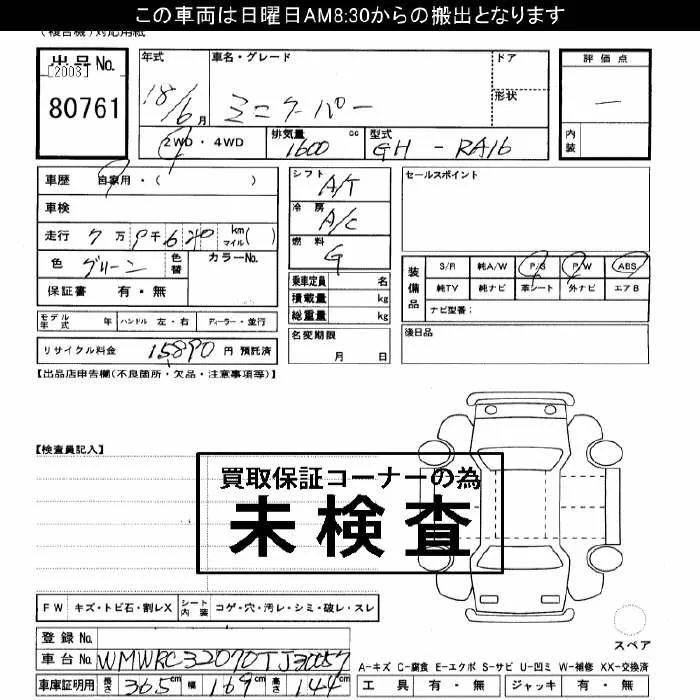 この車両は日曜日AM8:30からの搬出となります
(複合機)対応用紙
出品No. 年式 車名・グレード ドア 評価点
[2003]
80761 18/6月 ミニクーパー 形状 ー
2WD・4WD 排気量 1600 cc 型式 GH-RA16 内装
車歴 自家用・( ) シフト A/T セールスポイント
車検 冷房 A/C
走行 7万9千6 20 km マイル( ) 燃料 G
色 グリーン 色替 カラーNo. 装備品 S/R 純A/W P/S P/W ABS
保証書 有・無 乗車定員 名 純TV 純ナビ 革シート 外ナビ エアB
積載量 kg ナビ型番:
モデル年式 年 ハンドル 左・右 ディーラー・並行 総重量 kg
リサイクル料金 15890円 預託済 名変期限 月 日 後日品
【出品店申告欄(不良箇所・欠品・注意事項等)】
【検査員記入】
買取保証コーナーの為
未検査
FW キズ・トビ石・割レX シート内装 コゲ・穴・汚レ・シミ・破レ・スレ
スペア
登録No.
車台No. WMWRC32070TJ30057
A-キズ C-腐食 E-エクボ S-サビ U-凹ミ W-補修 XX-交換済
車庫証明用 長さ 365cm 幅 169cm 高さ 144cm 工具 有・無 ジャッキ 有・無